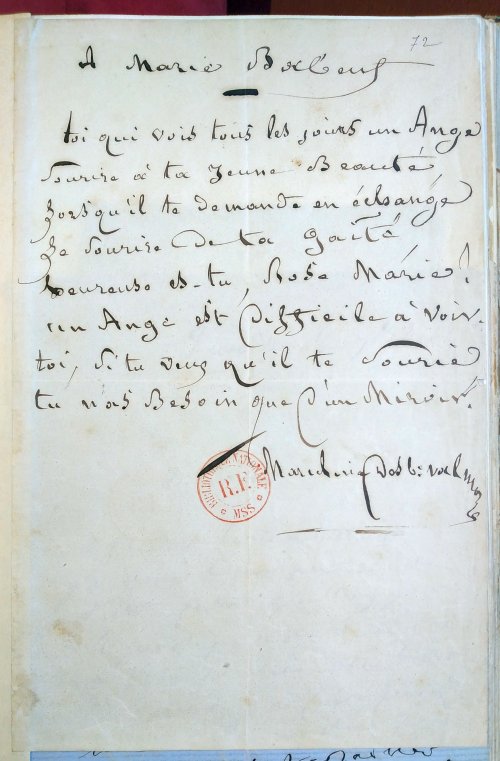 72
A Marie
toi qui vois tous les jours un Ange
Sourire à ta Jeune Beauté,
Lorsqu'il te demande en échange
Le Sourire de ta gaîté,
heureuse es-tu, Rose Marie !
un Ange est Difficile à voir.
toi, si tu veux qu'il te Sourie
tu n'as Besoin que d'un Miroir.
Marceline Desbordes Valmore
BIBLIOTHÈQUE NATIONALE
R.F.
MSS